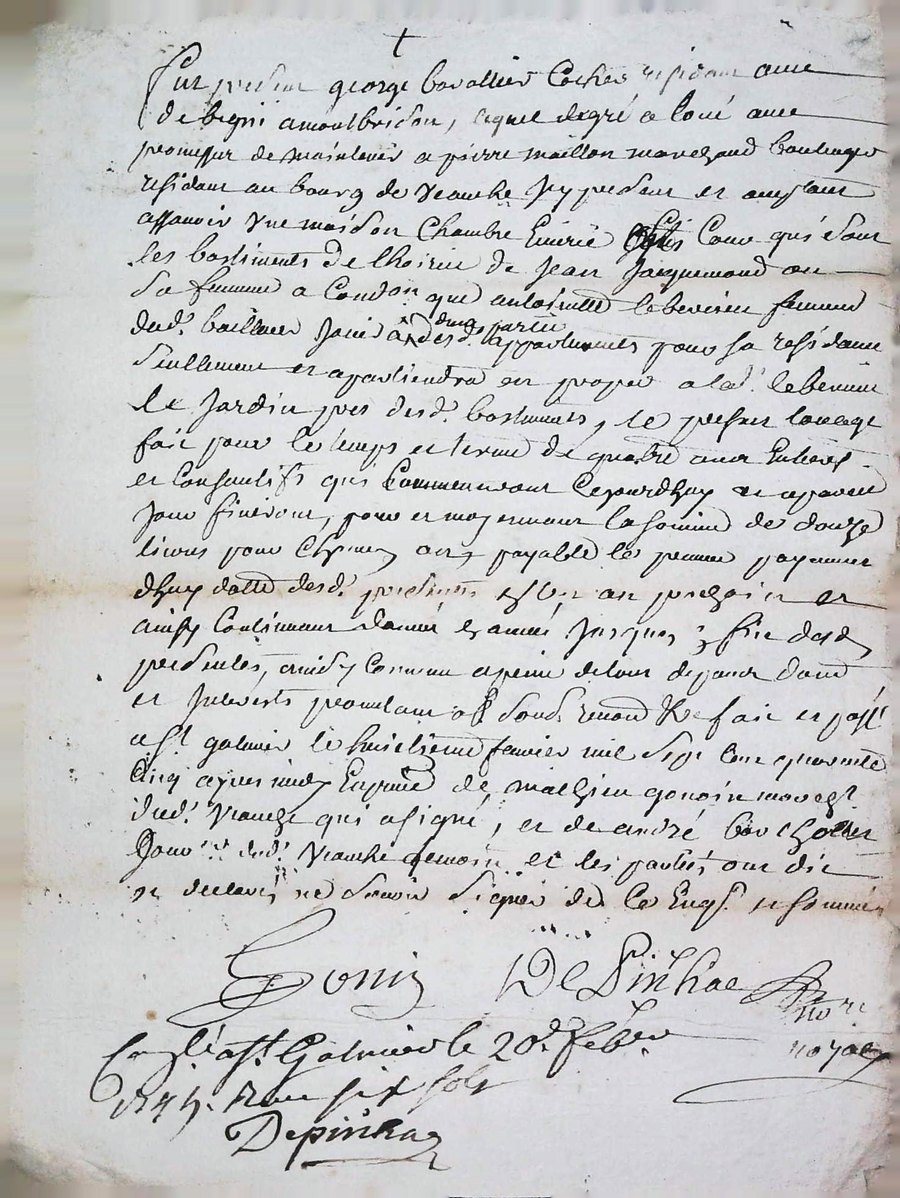 fut present george Cavallier Cocher residant avec
de bigni a montbrison, lequel de gré a loué avec
promesse de maintenir a pierre maillon marchand boulanger
residant au bourg de Veauche Icy present et acceptant
assavoir Une maison Chambre Ecurie Cave qui sont
les bastiments de lhoirie de Jean Jacquemond ou
sa femme a Condon que antoinette femme
dud.t bailleur Jouit a desd. appartements pour sa residance
seullement et apartiendra en propre a lad.
Le Jardin pres desd. bastiments, le present louage
fait pour le temps et terme de quatre années Entieres
et Consecutifs qui Commenceront Cejourdhuy et apareil
Jour finiront, pour et moyennant la somme de douze
livres pour Chacun an, payable le premier payement
dhuy datte des presentes En un an prochain et
ainsy Continuer dannée En année Jusques a fin desd.
presentes, ainsy Convenu a peine de tous depens dom.
et Interests promettant obl. soub. renon. &c fait et passé
a S.t galmier le huitieme fevrier mil sept Cent quarante
Cinq apres midy En presence de mathieu gonin march.t
dud. Veauche qui a signé, et de andré
Jour.er dud. Veauche temoin et les parties ont dit
et declaré ne scavoir signer de Ce Enq. et sommés
Gonin DePinhac
no.re
royal
Con.lé a S.t Galmier le 20.e feb.er
1745. Reçu six sols
Depinhac